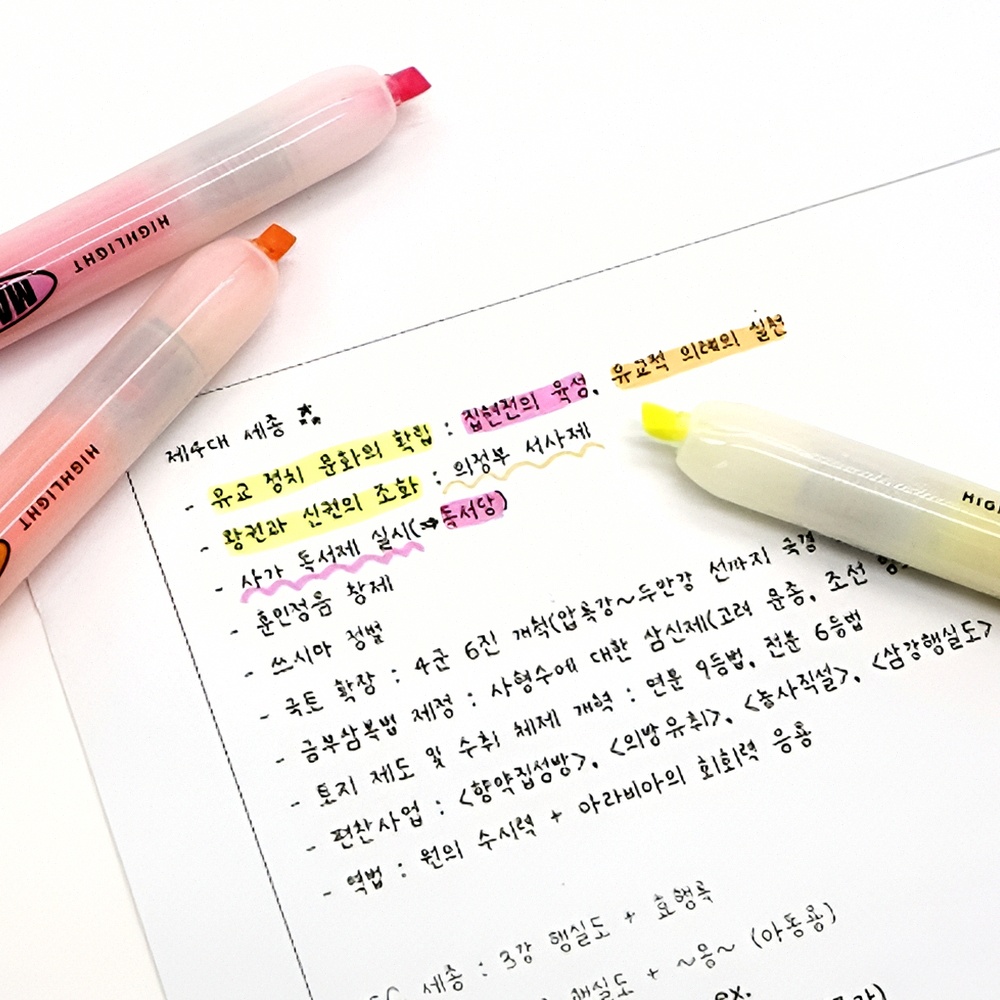 HIGHLIGHT
MA
HIGHLIGHT
HIGH
제4대 세종
- 유교 정치 문화의 확립 : 집현전의 육성, 유교적 의례의 실천
- 왕권과 신권의 조화 : 의정부 서사제
- 사가 독서제 실시(⇒독서당)
- 훈민정음 창제
- 쓰시마 정벌
- 국토 확장 : 4군 6진 개척(압록강~두만강 선까지 국경
- 금부삼복법 제정 : 사형수에 대한 삼심제(고려 문종, 조선
- 토지 제도 및 수취 체제 개혁 : 연분 9등법, 전분 6등법
- 편찬사업 : <향약집성방>, <의방유취>, <농사직설>, <삼강행실도>
- 역법 : 원의 수시력 + 아라비아의 회회력 응용
세종 : 3강 행실도 + 효행록
행실도 + ~응~ (아동용)
ex.